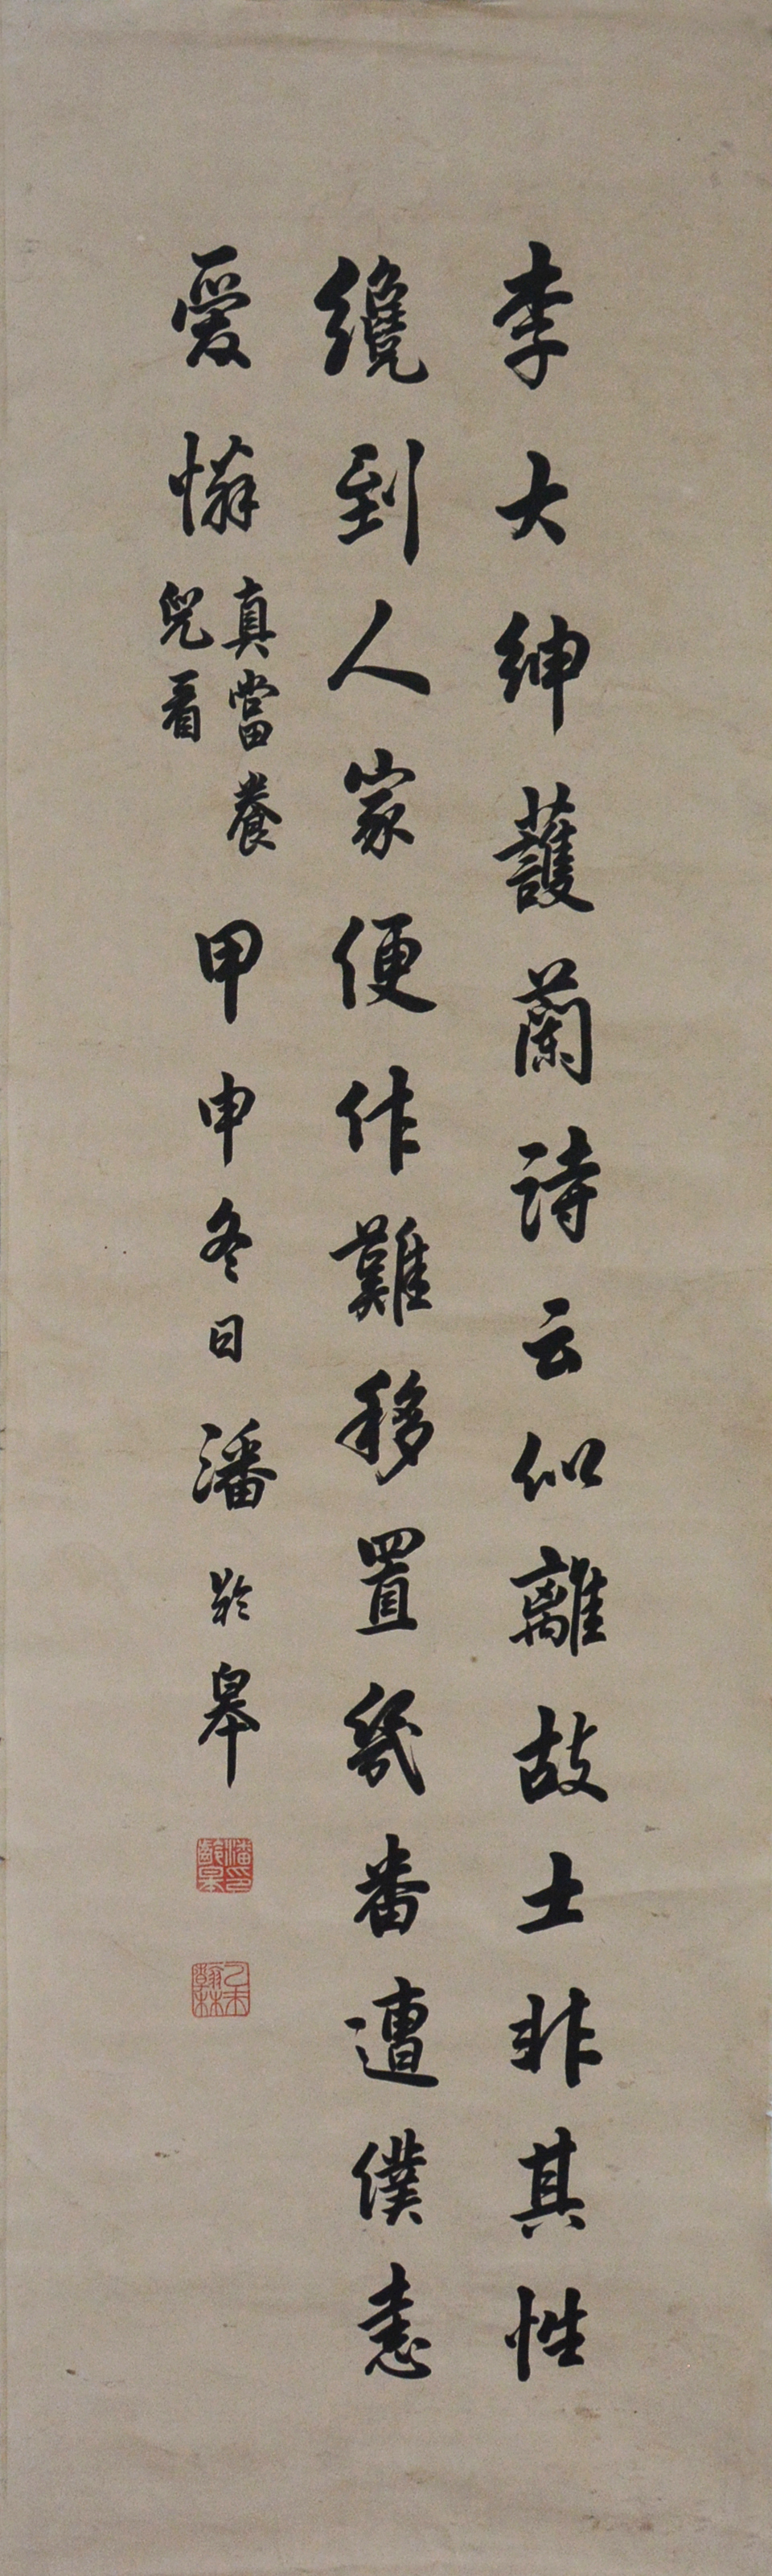 李大紳護蘭詩云似離故土非其性
纔到人家便作難移置幾番遭僕恚
愛憐
真當養
兒看
甲申冬日潘齡皋
潘印齡皋
乙未翰林